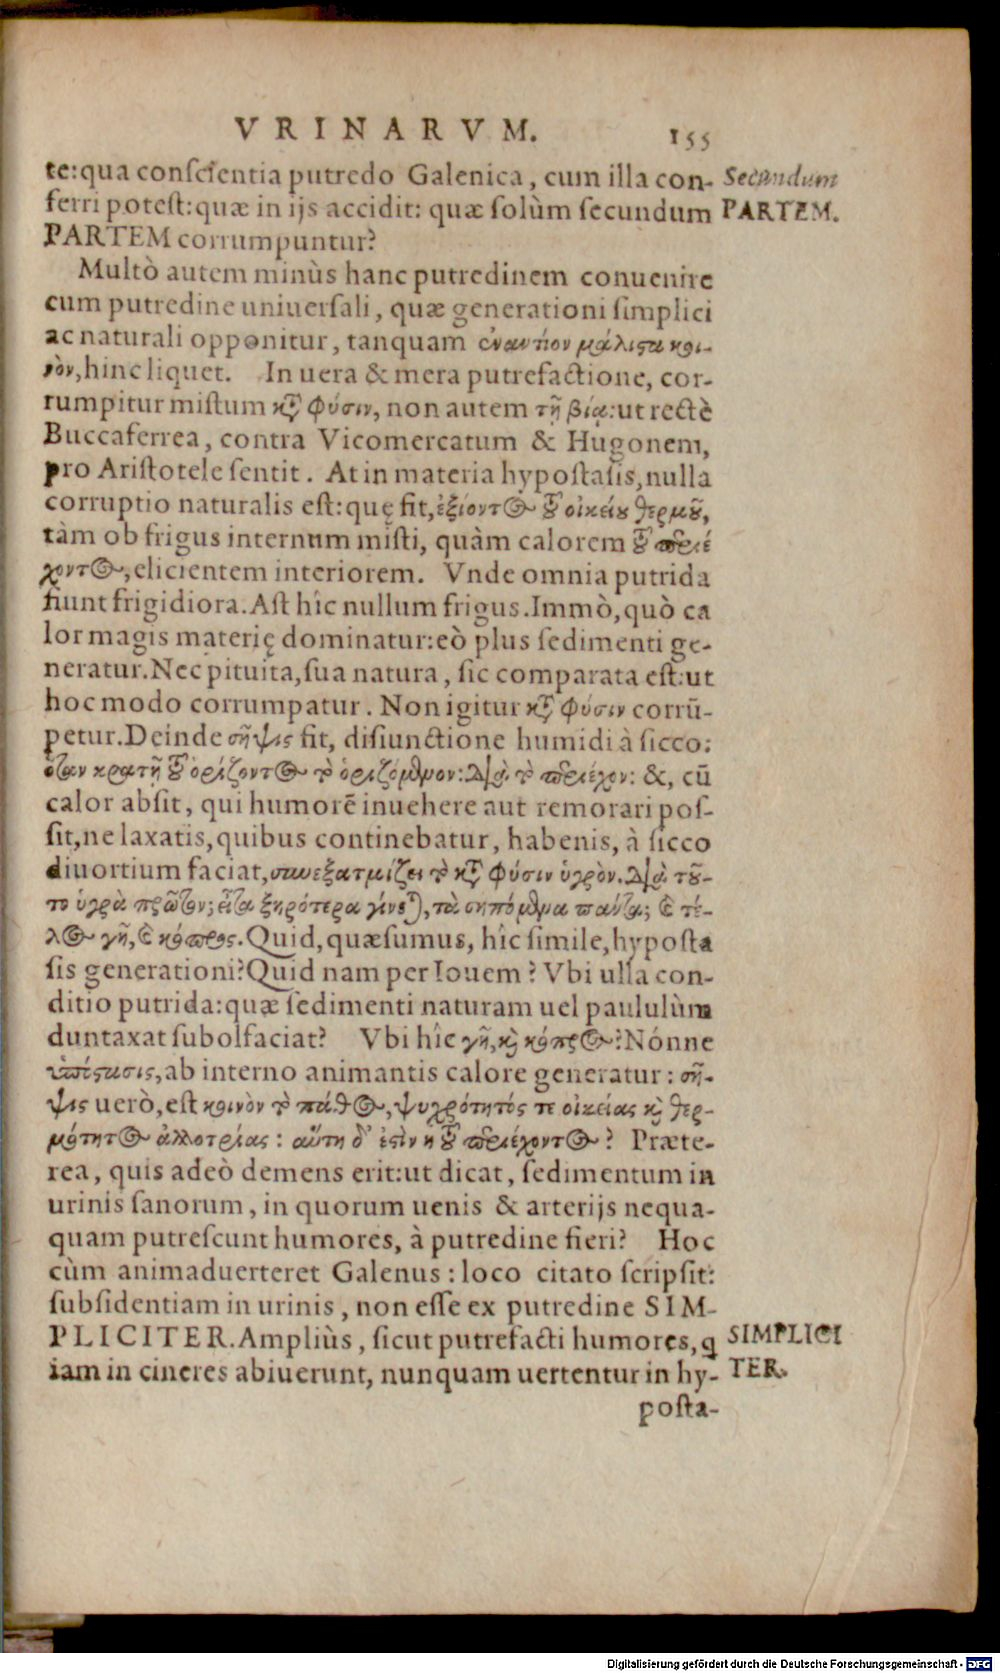 VRINARVM. 155
te:qua conscientia putredo Galenica, cum illa con- Secundum
ferri potest:quæ in ijs accidit: quæ solùm secundum PARTEM.
PARTEM corrumpuntur?
Multò autem minùs hanc putredinem conuenire
cum putredine uniuersali, quæ generationi simplici
ac naturali opponitur, tanquam ἐναντίον μάλιστα κοι-
νὸν, hinc liquet. In uera & mera putrefactione, cor-
rumpitur mistum κτ̃ φύσιν, non autem τῇ βίᾳ:ut rectè
Buccaferrea, contra Vicomercatum & Hugonem,
pro Aristotele sentit. At in materia hypostasis, nulla
corruptio naturalis est:quę fit, ἐξίοντος τοῦ οἰκείου θερμοῦ,
tàm ob frigus internum misti, quàm calorem τοῦ περιέ
χοντος, elicientem interiorem. Vnde omnia putrida
fiunt frigidiora. Ast hîc nullum frigus. Immò, quò ca
lor magis materię dominatur:eò plus sedimenti ge-
neratur. Nec pituita, sua natura, sic comparata est:ut
hoc modo corrumpatur. Non igitur κτ̃ φύσιν corrũ-
petur. Deinde σῆψις fit, disiunctione humidi à sicco:
ὅταν κρατῇ τοῦ ὁρίζοντος τὸ ὁριζόμενον: διὰ τὸ περιέχον: &, cũ
calor absit, qui humorẽ inuehere aut remorari pos-
sit, ne laxatis, quibus continebatur, habenis, à sicco
diuortium faciat, συνεξατμίζει τὸ κτ̃ φύσιν ὑγρὸν. διὰ τοῦ-
το ὑγρὰ πρῶτον; εἶτα ξηρότερα γίνεται, τὰ σηπόμενα πάντα; καὶ τέ-
λος γῆ, καὶ κόπρος. Quid, quæsumus, hîc simile, hyposta
sis generationi? Quid nam per Iouem? Vbi ulla con-
ditio putrida:quæ sedimenti naturam uel paululùm
duntaxat subolfaciat? Vbi hîc γῆ, καὶ κόπρος? Nónne
ὑπόστασις, ab interno animantis calore generatur: σῆ-
ψις uerò, est κοινὸν τὸ πάθος, ψυχρότητός τε οἰκείας καὶ θερ-
μότητος ἀλλοτρίας: αὕτη δ' ἐστὶν ἡ τοῦ περιέχοντος? Præte-
rea, quis adeò demens erit:ut dicat, sedimentum in
urinis sanorum, in quorum uenis & arterijs nequa-
quam putrescunt humores, à putredine fieri? Hoc
cùm animaduerteret Galenus: loco citato scripsit:
subsidentiam in urinis, non esse ex putredine SIM-
PLICITER. Ampliùs, sicut putrefacti humores, q SIMPLICI
iam in cineres abiuerunt, nunquam uertentur in hy- TER.
posta-
Digitalisierung gefördert durch die Deutsche Forschungsgemeinschaft - DFG